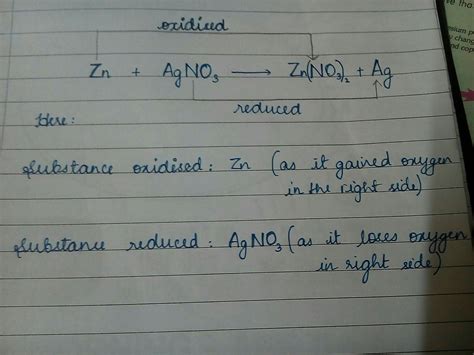 oxidised
Zn + AgNO₃ ⟶ Zn(NO₃)₂ + Ag
reduced
Here:
Substance oxidised: Zn (as it gained oxygen
in the right side)
Substance reduced: AgNO₃ (as it loses oxygen
in right side)